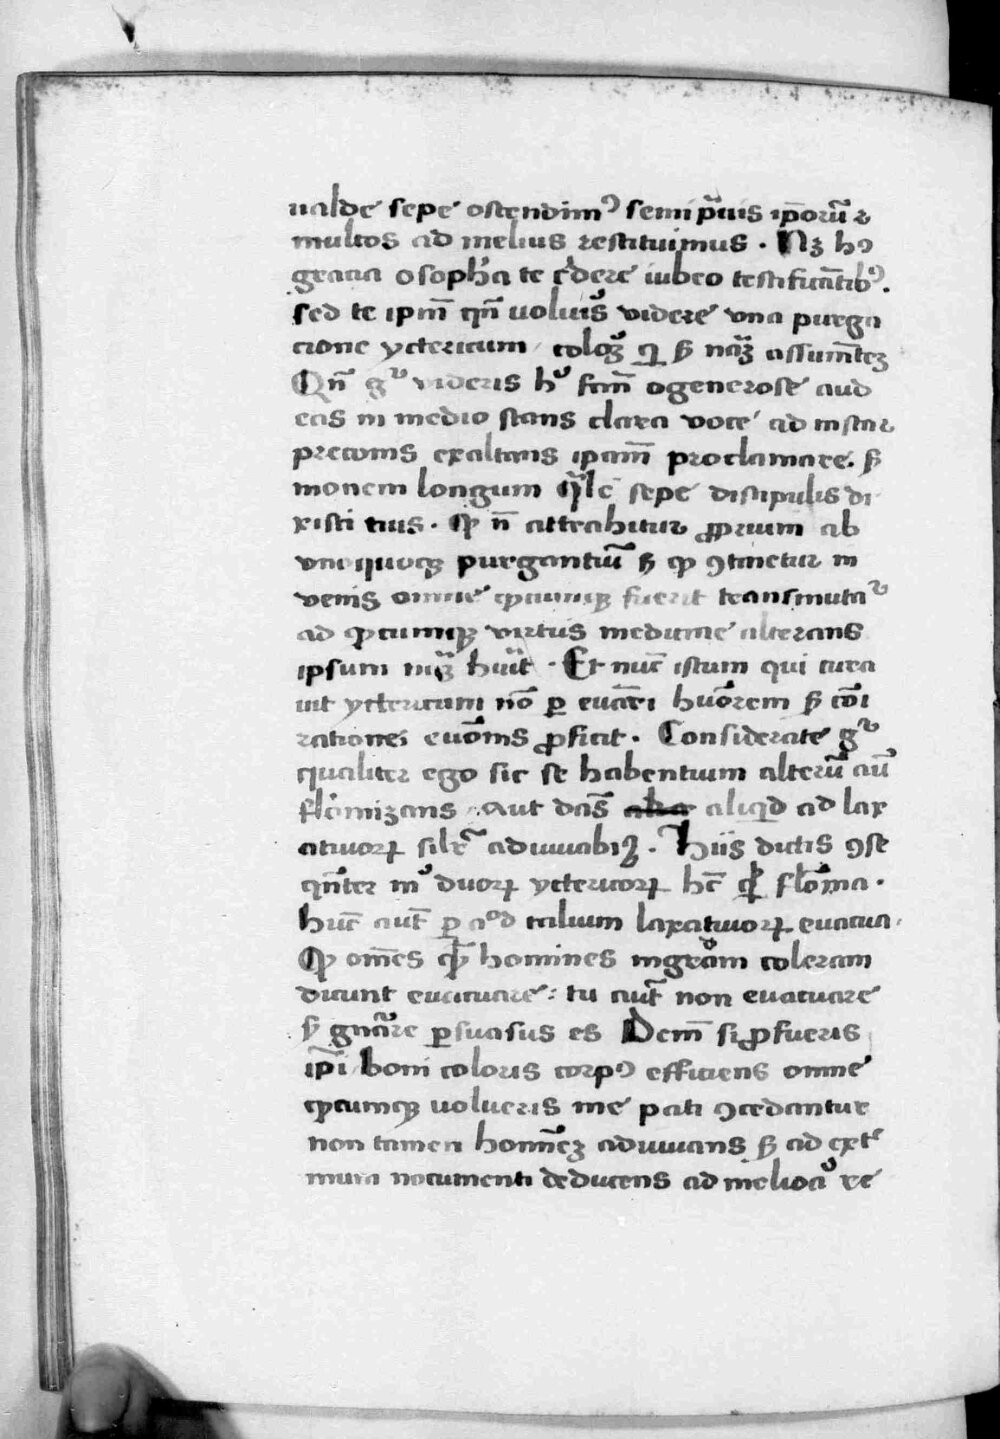 ualde sepe ostendimꝰ semip̃tiis ip̃orũ ⁊
multos ad melius restituimus . Nꝫ hͦ
gracia o soph̃a te c̃dere iubeo testificãtibꝰ.
sed te ipm̃ qñ uoluĩs videre vna purga
cione yctericum / colọ̃ꝫ qͥ ẞ naꝫ assumẽteꝫ
Qñ gͦ videris hͦ fcm̃ o generose aud
eas in medio stans clara voce ad instar
preconis exaltans ip̃am̃ proclamare. ẞ
monem longum q̃lē sepe discipulis di
xisti tuis . Qꝙ n̄ attrahitur ꝓprium ab
vnoquoqꝫ purgantiũ ẞ ꝙ ꝯtinetur in
venis omne ꝙcumqꝫ fuerit transmutaᷣ
ad ꝙcumqꝫ virtus medicine alterans
ipsum uĩꝫ huĩt . Et nuc̃ istum qui cura
uit yctericum nõ ꝑ euac̃ri huõrem ẞ cõi
rationei euõnis ꝓficit . Considerate gͦ
qualiter ego sic se habentium alterũ aũ
fleõmizans . Aut das̃ aliq̃d ad lax
atiuorꝝ silr̃ adiuuabiꝫ . Hiis dictis ꝯse
qñter mͦ duorꝝ yctericorꝝ hc̃ ꝙ fleõma .
Huc̃ aut̃ ꝑ aͦd talium laxatiuorꝝ euacua .
Qꝙ om̃es ꝙ homines ingrõam coleram
dicunt euacuare : tu aut̃ non euacuare
ẞ gñare ꝑsuasus es Dem̃ si ꝓfueris
ip̃i boni coloris corpꝰ efficiens omne
ꝙcumqꝫ uolueris me pati ꝯcedantur
non tamen homĩeꝫ adiuuans ẞ ad extͤ
mura nocumenti deducens ad melioꝛͣ re